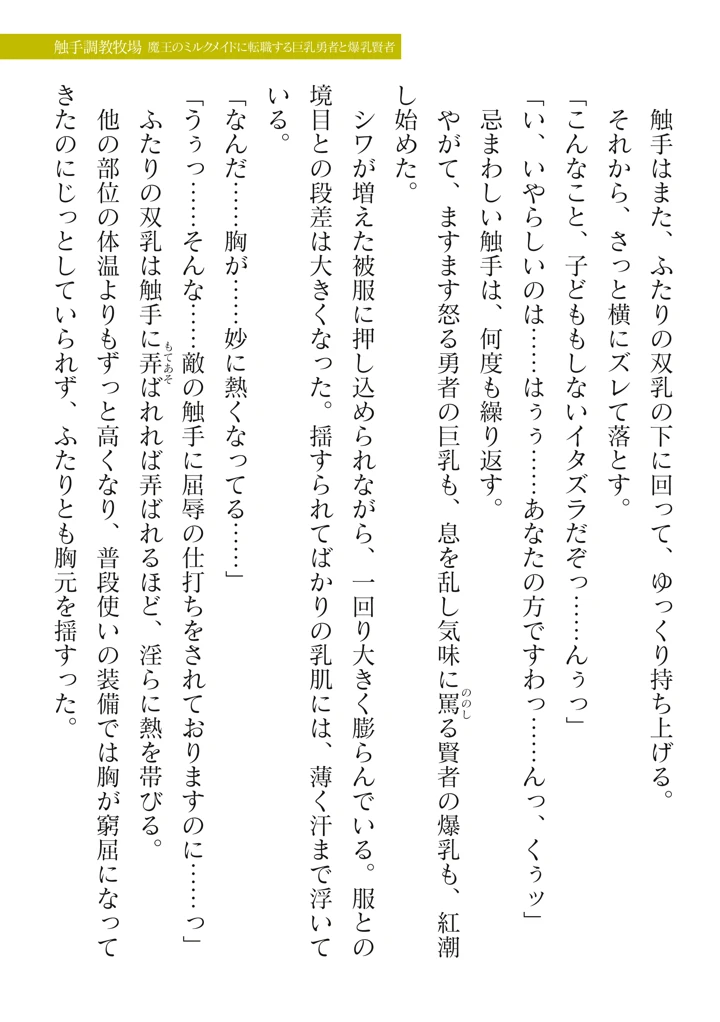 触手調教牧場 魔王のミルクメイドに転職する巨乳勇者と爆乳賢者
触手はまた、ふたりの双乳の下に回って、ゆっくり持ち上げる。
それから、さっと横にズレて落とす。
「こんなこと、子どももしないイタズラだぞっ……んぅっ」
「い、いやらしいのは……はぅぅ……あなたの方ですわっ……んっ、くぅッ」
忌まわしい触手は、何度も繰り返す。
やがて、ますます怒る勇者の巨乳も、息を乱し気味に罵る賢者の爆乳も、紅潮
ののし
し始めた。
シワが増えた被服に押し込められながら、一回り大きく膨らんでいる。服との
境目との段差は大きくなった。揺すられてばかりの乳肌には、薄く汗まで浮いて
いる。
「なんだ……胸が……妙に熱くなってる……」
「うぅっ……そんな……敵の触手に屈辱の仕打ちをされておりますのに……っ」
ふたりの双乳は触手に弄ばれれば弄ばれるほど、淫らに熱を帯びる。
もてあそ
他の部位の体温よりもずっと高くなり、普段使いの装備では胸が窮屈になって
きたのにじっとしていられず、ふたりとも胸元を揺すった。